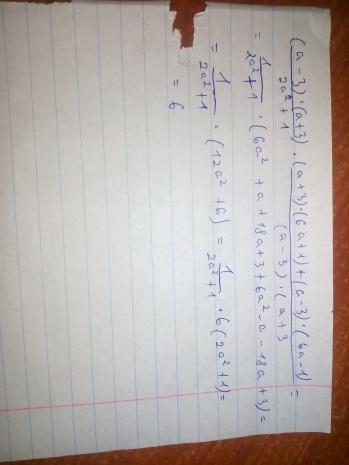 (a-3)·(a+3)/2a²+1 · (a+3)·(6a+1)+(a-3)·(6a-1)/(a-3)·(a+3 =
= 1/2a²+1 · (6a²+a+18a+3+6a²-a-18a+3)=
= 1/2a²+1 · (12a²+6) = 1/2a²+1 · 6(2a²+1)=
= 6